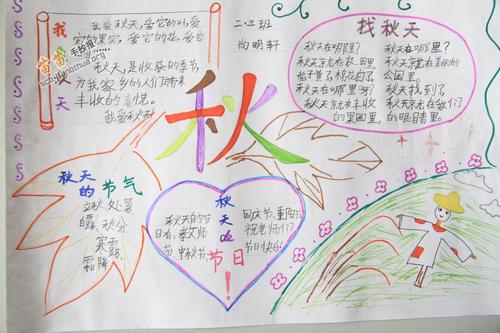 我爱秋天
我爱秋天,爱它的叶,爱
它的果实,爱它的花,爱它
秋天,是收获的季节,
为我家乡的人们带来
丰收的喜悦。
我爱秋秋
苗苗手抄报
shouchaobaohua.com
二·三班
尚明轩
秋
找秋天
秋天在哪里?
秋天就在农田里
稻子黄了,棉花白了
秋天在哪里?
秋天就在丰收
的果园里。
秋天在哪里?
秋天就在美丽的
公园里。
秋天找到了
秋天就在我们
的眼睛里。
秋天的节气
立秋、处暑
白露、秋分、
寒露、
霜降
秋天的节日!
秋天的节
日有:教师
节、中秋节、
国庆节、重阳节
祝老师们
节日快乐!